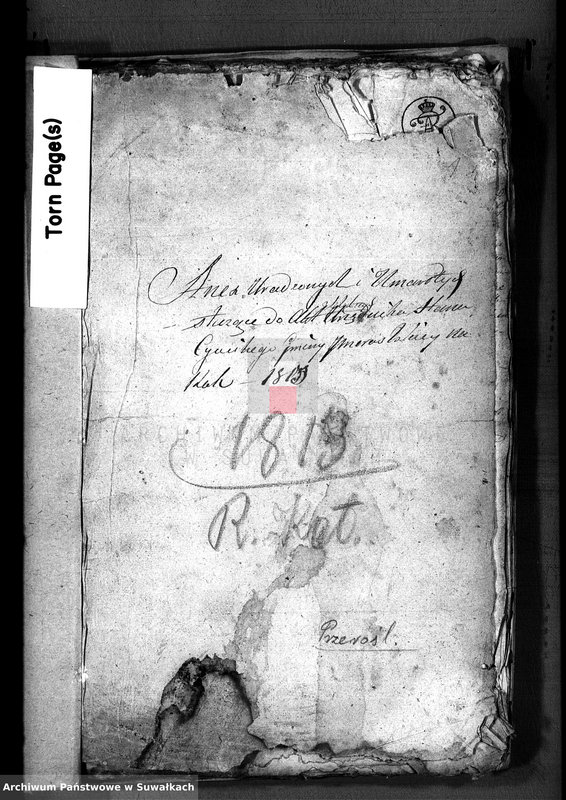 Torn Page(s)
Anexa Urodzonych i Umarłych
służące do Akt Urzędnika Stanu
Cywilnego Gminy Przerosl na
Rok 1813
1813
R. Kat.
Przerośl.
ARCHIWUM PAŃSTWOWE
Archiwum Państwowe w Suwałkach